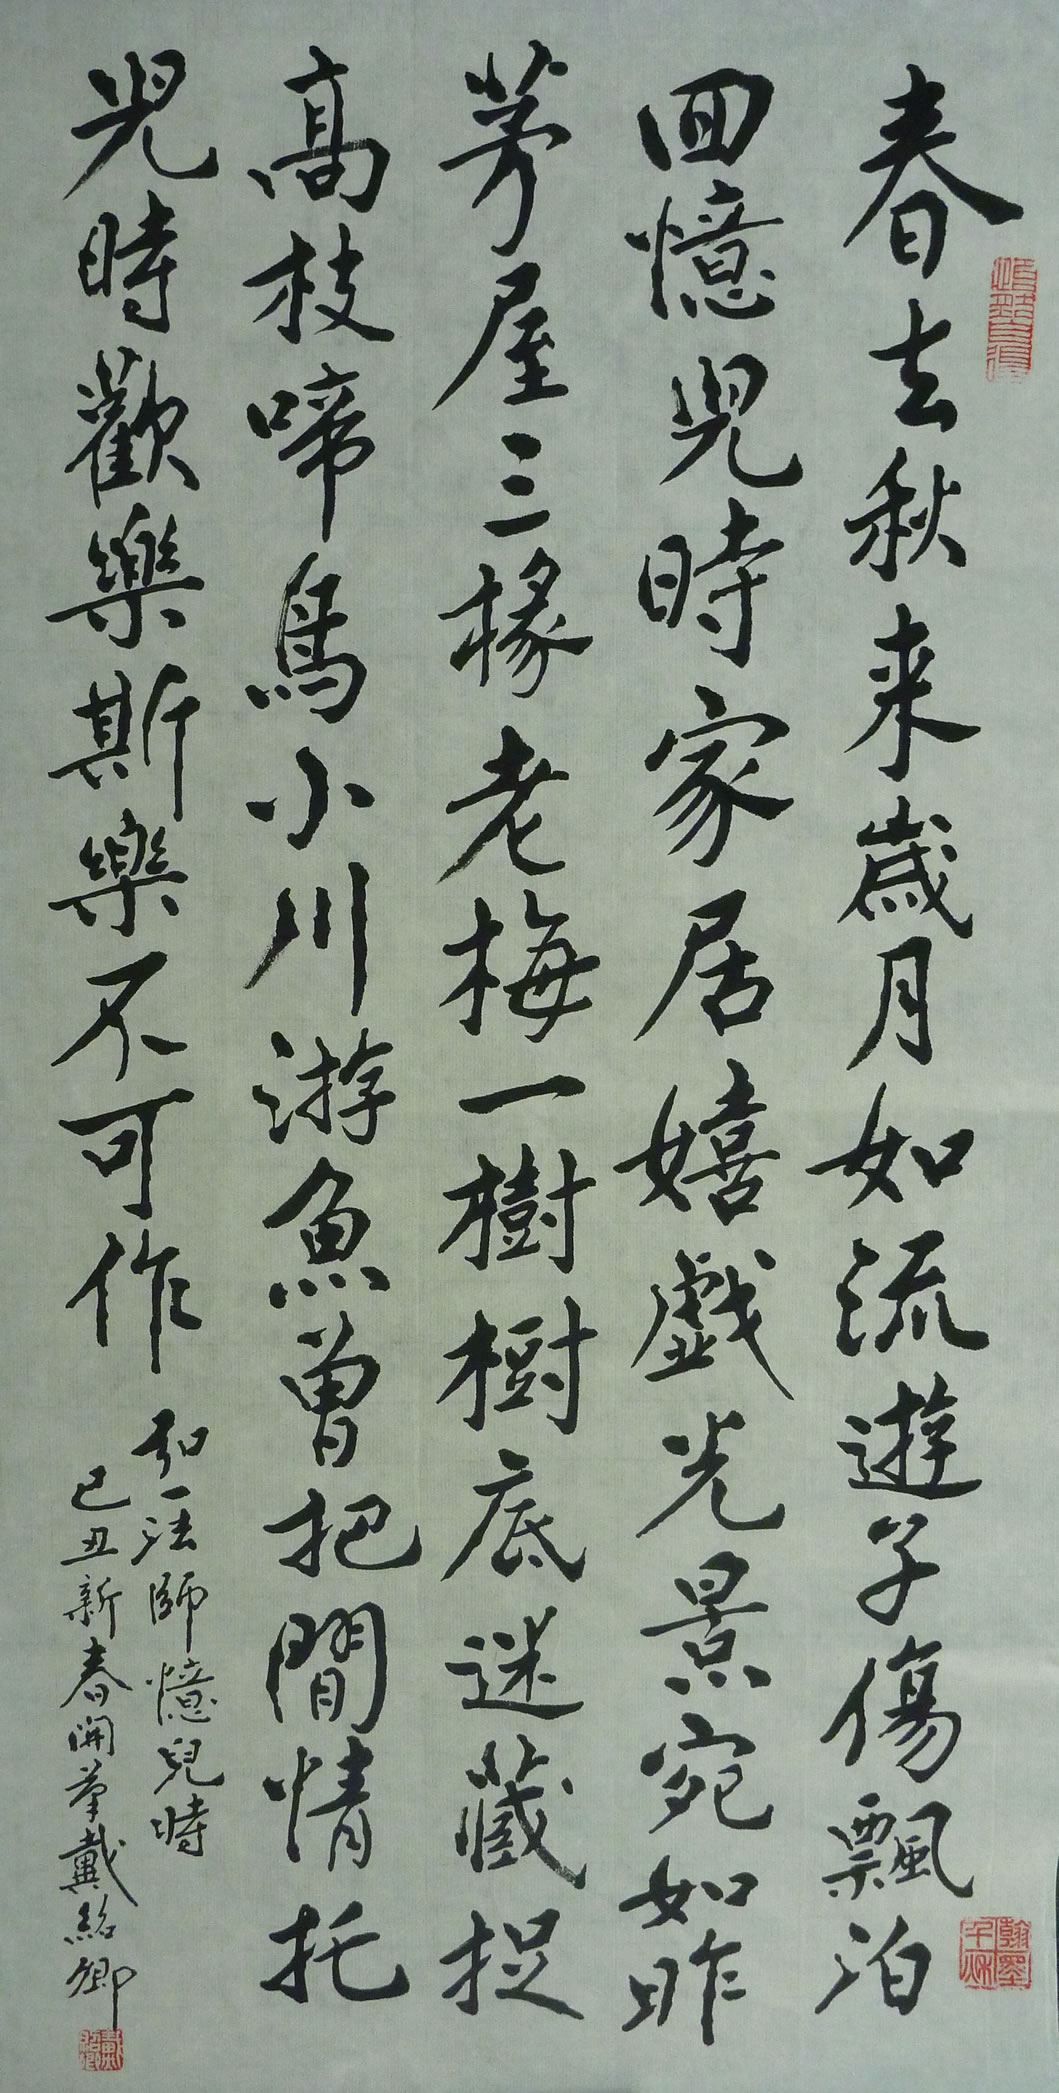 春去秋来歳月如流遊子傷飄泊
回憶児時家居嬉戯光景宛如昨
茅屋三椽老梅一樹樹底迷藏捉
高枝啼鳥小川游魚曾把閒情托
児時歡樂斯樂不可作
弘一法師憶兒時
己丑新春開筆戴紹卿